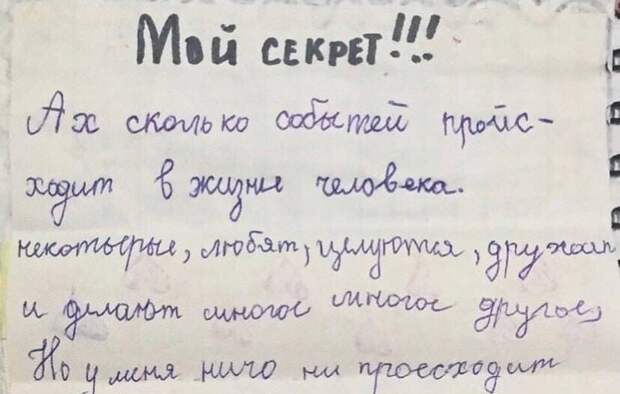 Мой секрет!!!
Ах сколько событей пройс-
ходит в жизни человека.
некотырые, любят, целуются, дружат
и делают многое многое другое,
Но у меня ничо ни проесходит